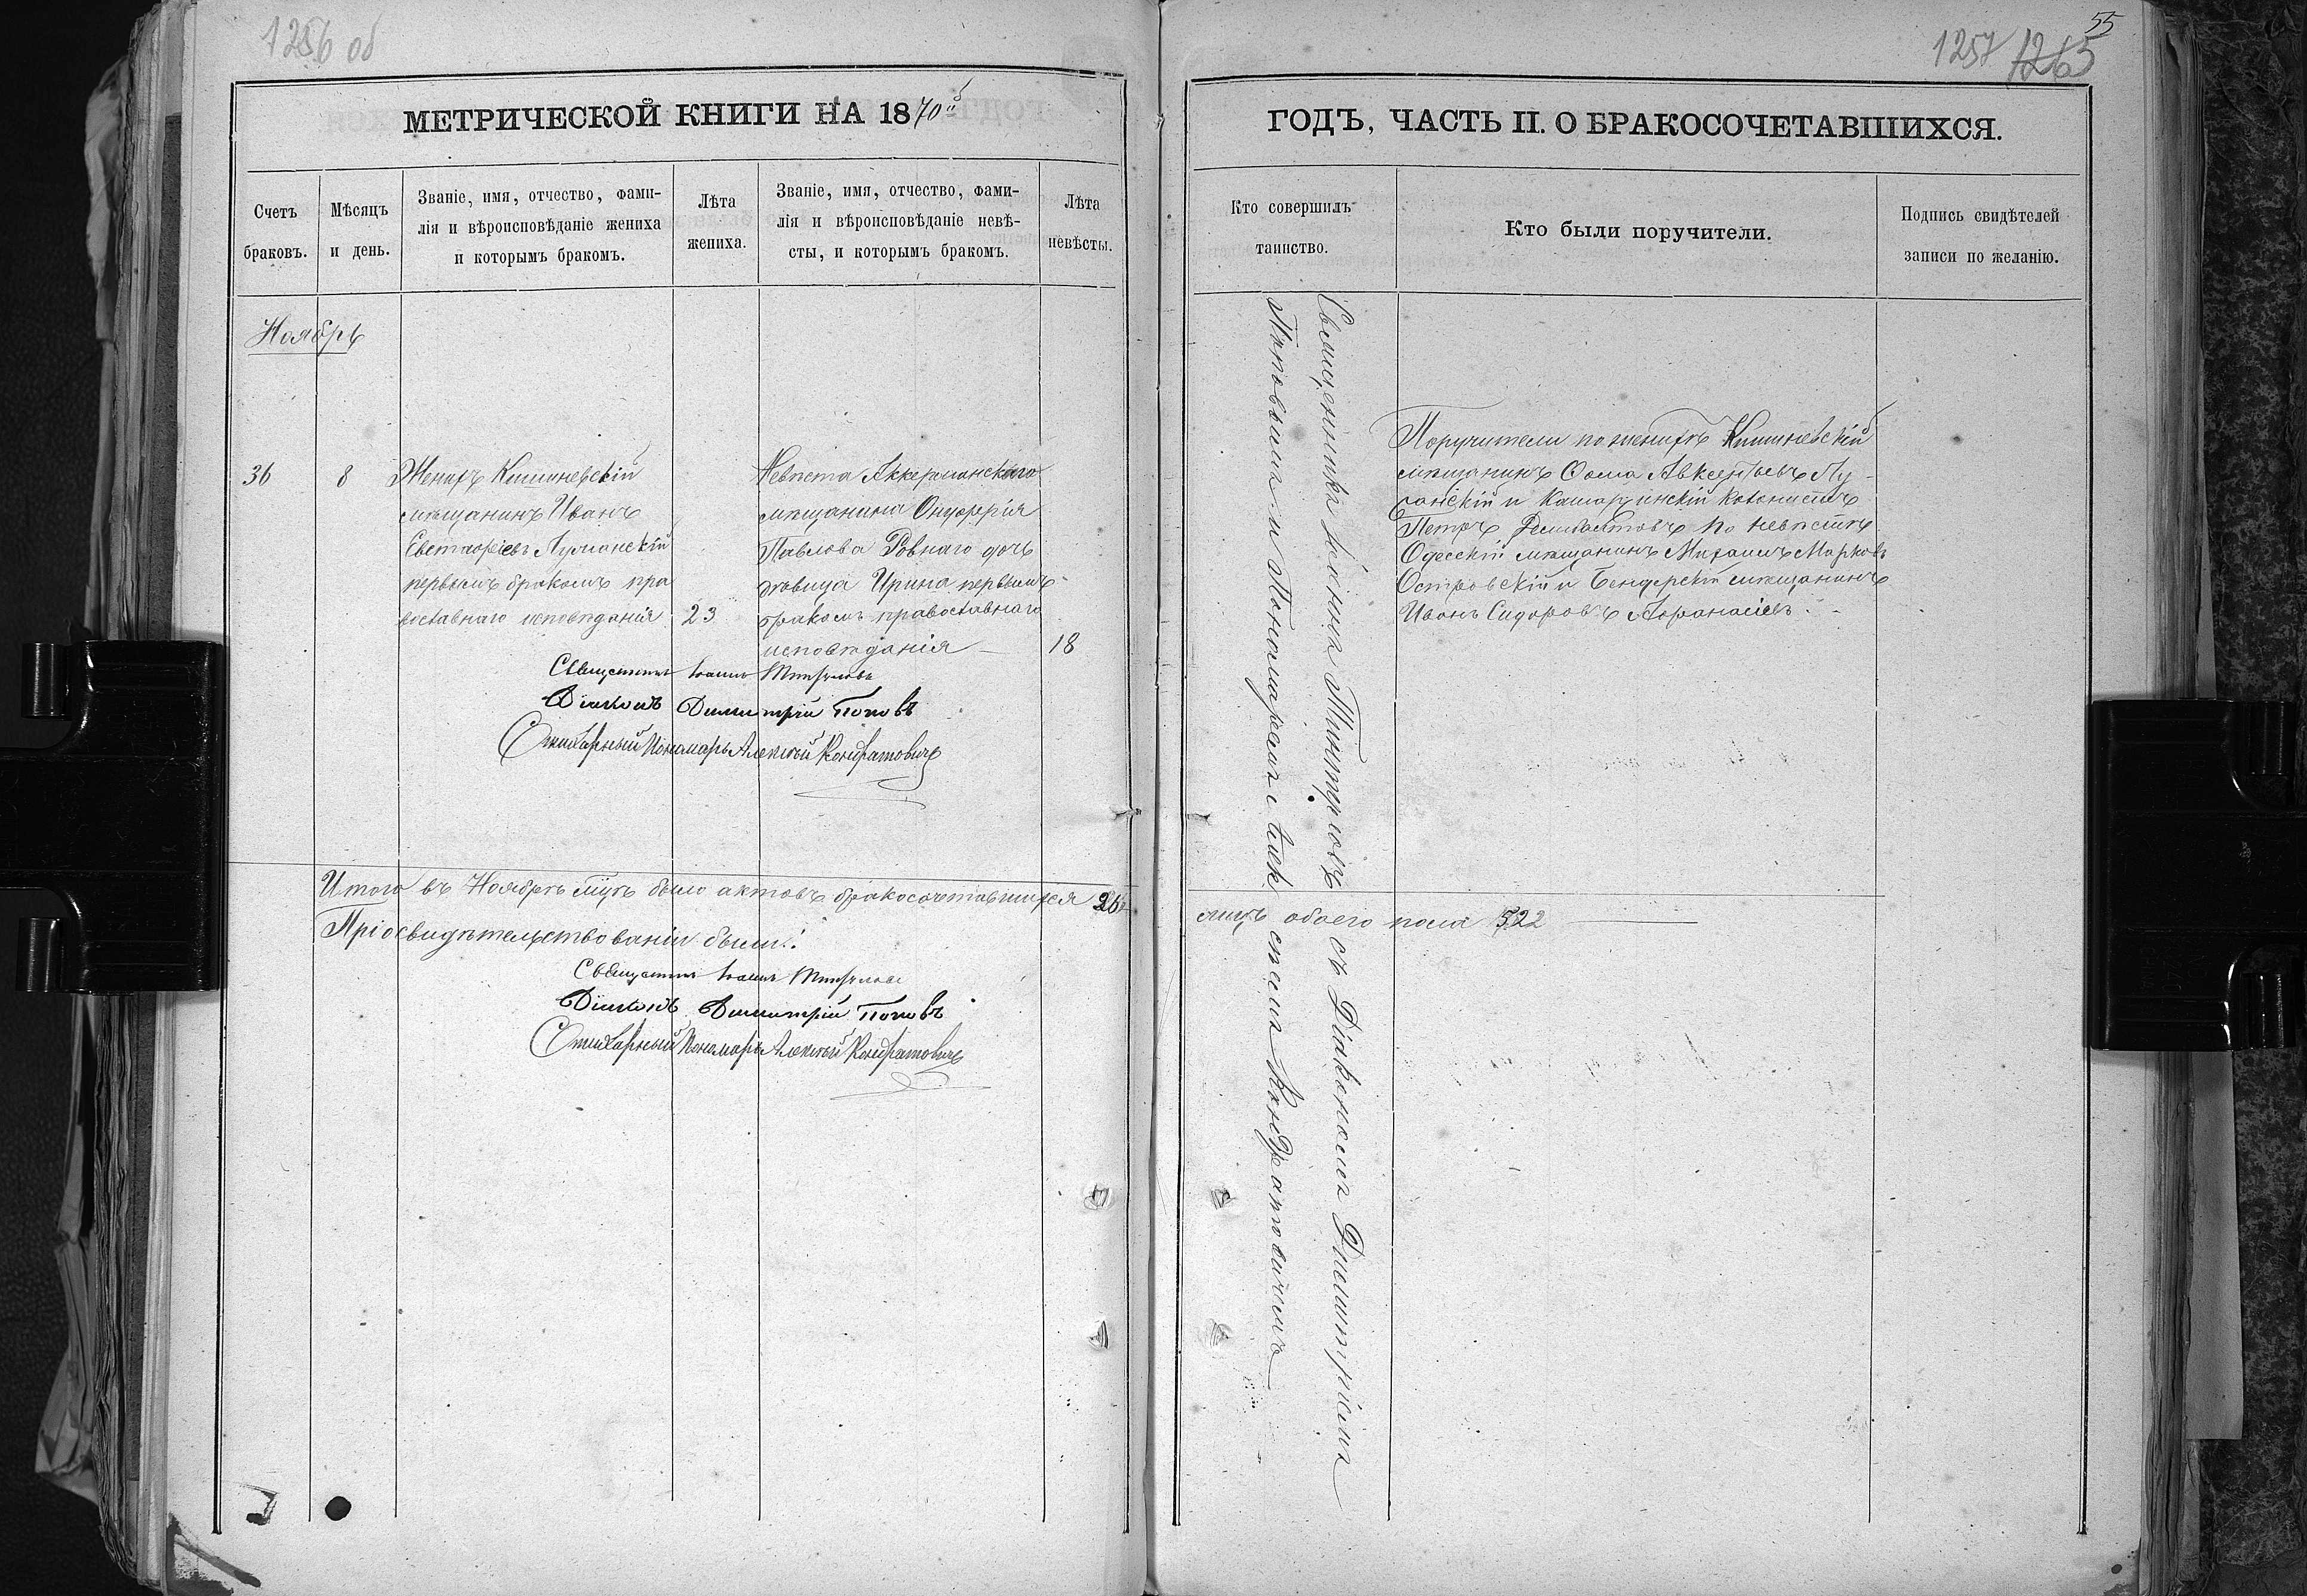 1256 об
МЕТРИЧЕСКОЙ КНИГИ НА 1870й
Счетъ браковъ.
Мѣсяцъ и день.
Званіе, имя, отчество, фами-
лія и вѣроисповѣданіе жениха
и которымъ бракомъ.
Лѣта
жениха.
Званіе, имя, отчество, фами-
лія и вѣроисповѣданіе невѣ-
сты, и которымъ бракомъ.
Лѣта
невѣсты.
Ноябрь
36
8
Женихъ Кишиневскій
мѣщанинъ Иванъ
Евстафіевъ Лучанскій
первымъ бракомъ пра
вославнаго исповѣданія
23
Невѣста Аккерманскаго
мѣщанина Онуфрія
Павлова Ровнаго дочь
дѣвица Ирина первымъ
бракомъ православнаго
исповѣданія
18
Священникъ Іоаннъ
Діаконъ Димитрій Поповъ
Стихарный Пономарь Алексѣй Кондратовичъ
Итого въ Ноябрѣ мцѣ было актовъ бракосочетавшихся 26
При освидѣтельствованіи были:
Священникъ Іоаннъ
Діаконъ Димитрій Поповъ
Стихарный Пономарь Алексѣй Кондратовичъ
55
1257 1265
ГОДЪ, ЧАСТЬ II. О БРАКОСОЧЕТАВШИХСЯ.
Кто совершилъ
таинство.
Кто были поручители.
Подпись свидѣтелей
записи по желанію.
Священникъ Іоаннъ съ Діакономъ Димитріемъ
Поповымъ и Пономаремъ Алек сѣемъ Кондратовичемъ
Поручители по женихѣ Кишиневскій
мѣщанинъ Ѳома Авксентьевъ Лу-
ганскій и колонистъ
Петръ по невѣстѣ
Одесскій мѣщанинъ Михаилъ Марковъ
Островскій и Бендерскій мѣщанинъ
Иванъ Сидоровъ Аѳанасіевъ.
лицъ обоего пола 522